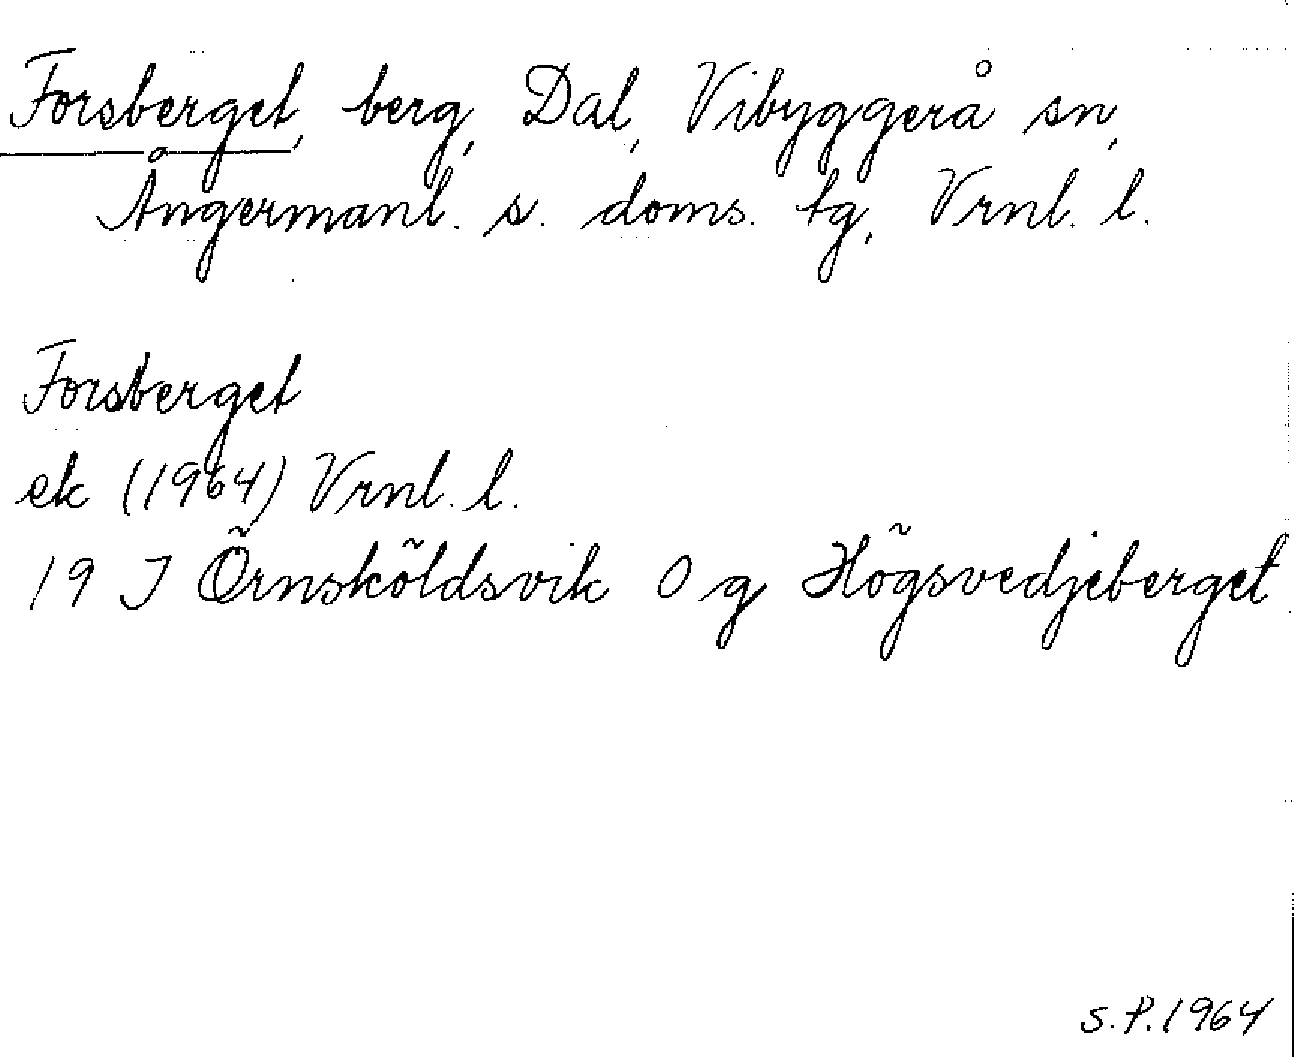 Forsberget, berg, Dal, Vibyggerå sn,
Ångermanl. s. doms. tg, Vrnl. l.
Forsberget
ek (1964) Vrnl. l.
19 J Örnsköldsvik 0 g Högsvedjeberget
S.P. 1964